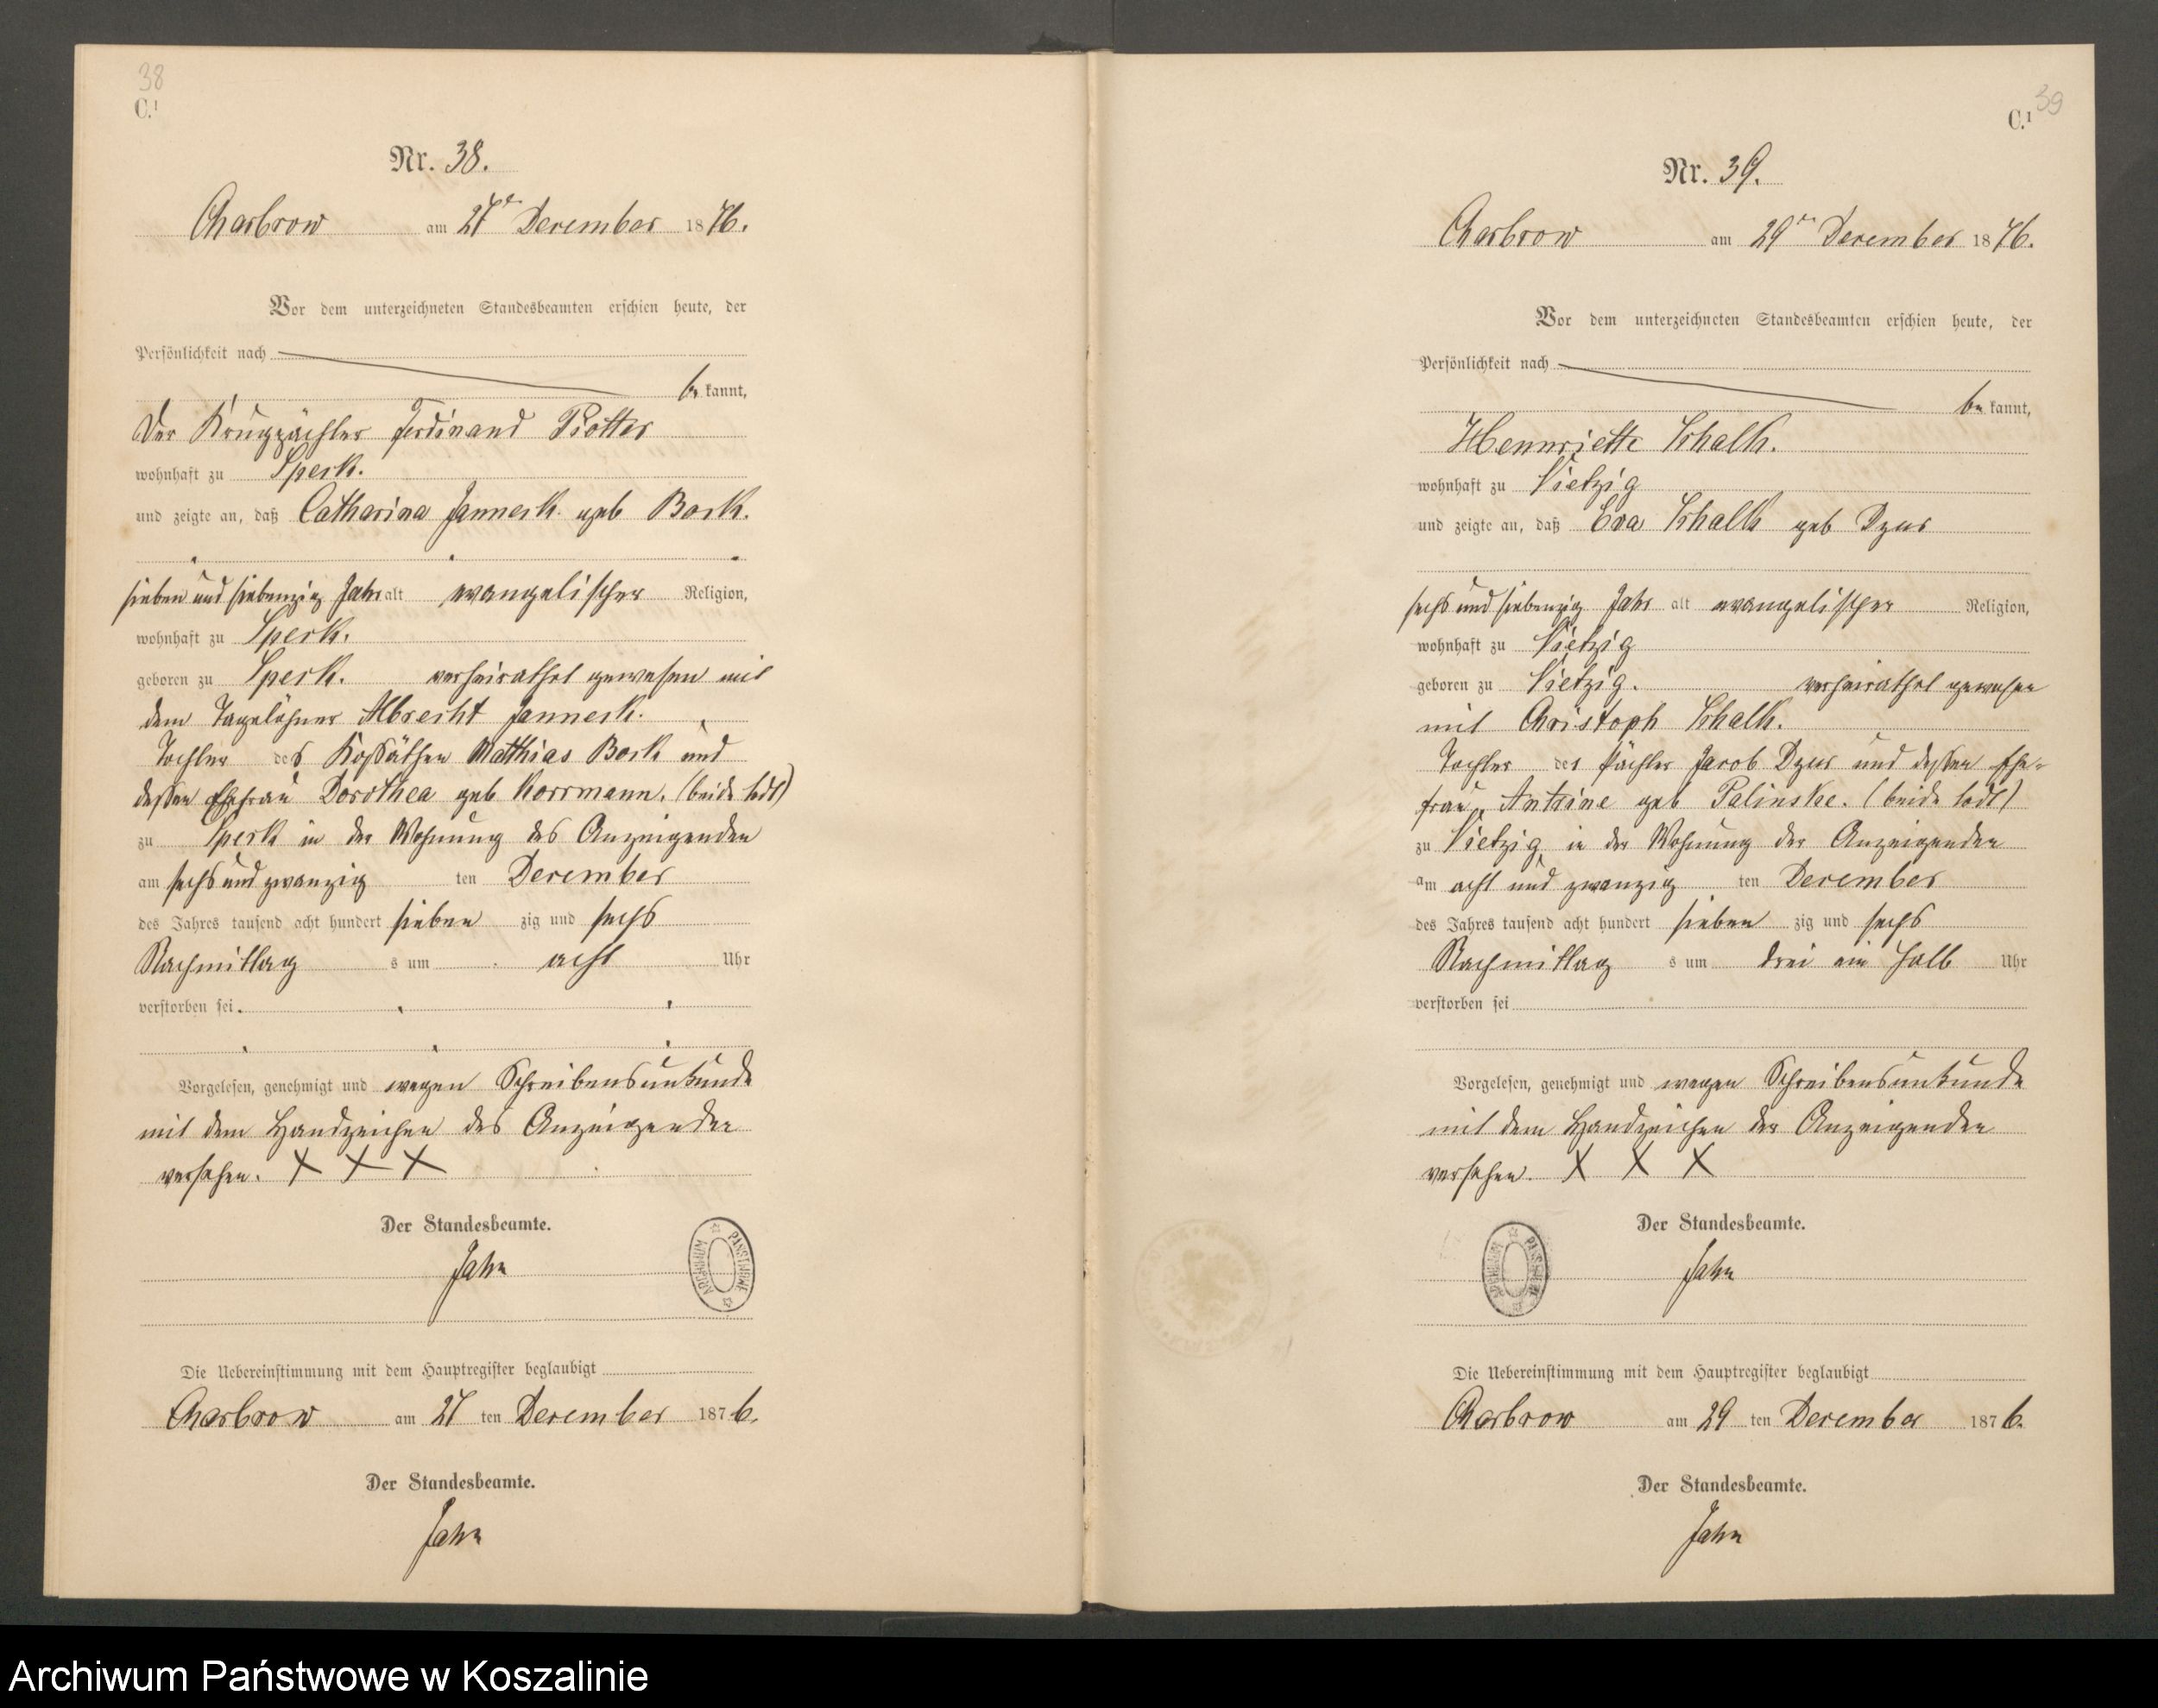 38
C.1
Nr. 38.
Charbrow am 27ten December 1876.
Vor dem unterzeichneten Standesbeamten erschien heute, der
Persönlichkeit nach
bekannt,
Der Krugpächter Ferdinand Piotter
wohnhaft zu Speck.
und zeigte an, daß Catharina Janneck geb Bock.
sieben und siebenzig Jahr alt evangelischer Religion,
wohnhaft zu Speck.
geboren zu Speck. verheirathet gewesen mit
dem Tagelöhner Albrecht Janneck.
Tochter des Kossäthen Matthias Bock und
dessen Ehefrau Dorothea geb Korrmann. (beide todt)
zu Speck in der Wohnung des Anzeigenden
am sechs und zwanzig ten December
des Jahres tausend acht hundert sieben zig und sechs
Nachmittag s um acht Uhr
verstorben sei.
Vorgelesen, genehmigt und wegen Schreibensunkunde
mit dem Handzeichen des Anzeigenden
versehen. X X X
Der Standesbeamte.
Jahn
ARCHIWUM PAŃSTWOWE
Die Uebereinstimmung mit dem Hauptregister beglaubigt
Charbrow am 27 ten December 1876.
Der Standesbeamte.
Jahn
39
C.1
Nr. 39.
Charbrow am 29ten December 1876.
Vor dem unterzeichneten Standesbeamten erschien heute, der
Persönlichkeit nach
bekannt,
Hennriette Schalk.
wohnhaft zu Vietzig
und zeigte an, daß Eva Schalk geb Dzus
sechs und siebenzig Jahr alt evangelischer Religion,
wohnhaft zu Vietzig
geboren zu Vietzig. verheirathet gewesen
mit Christoph Schalk.
Tochter des Pächter Jacob Dzus und dessen Ehe-
frau, geb Palinske. (beide todt)
zu Vietzig in der Wohnung der Anzeigenden
am acht und zwanzig ten December
des Jahres tausend acht hundert sieben zig und sechs
Nachmittag s um drei ein halb Uhr
verstorben sei
Vorgelesen, genehmigt und wegen Schreibensunkunde
mit dem Handzeichen der Anzeigenden
versehen. X X X
Der Standesbeamte.
Jahn
ARCHIWUM PAŃSTWOWE
Die Uebereinstimmung mit dem Hauptregister beglaubigt
Charbrow am 29 ten December 1876.
Der Standesbeamte.
Jahn
Archiwum Państwowe w Koszalinie